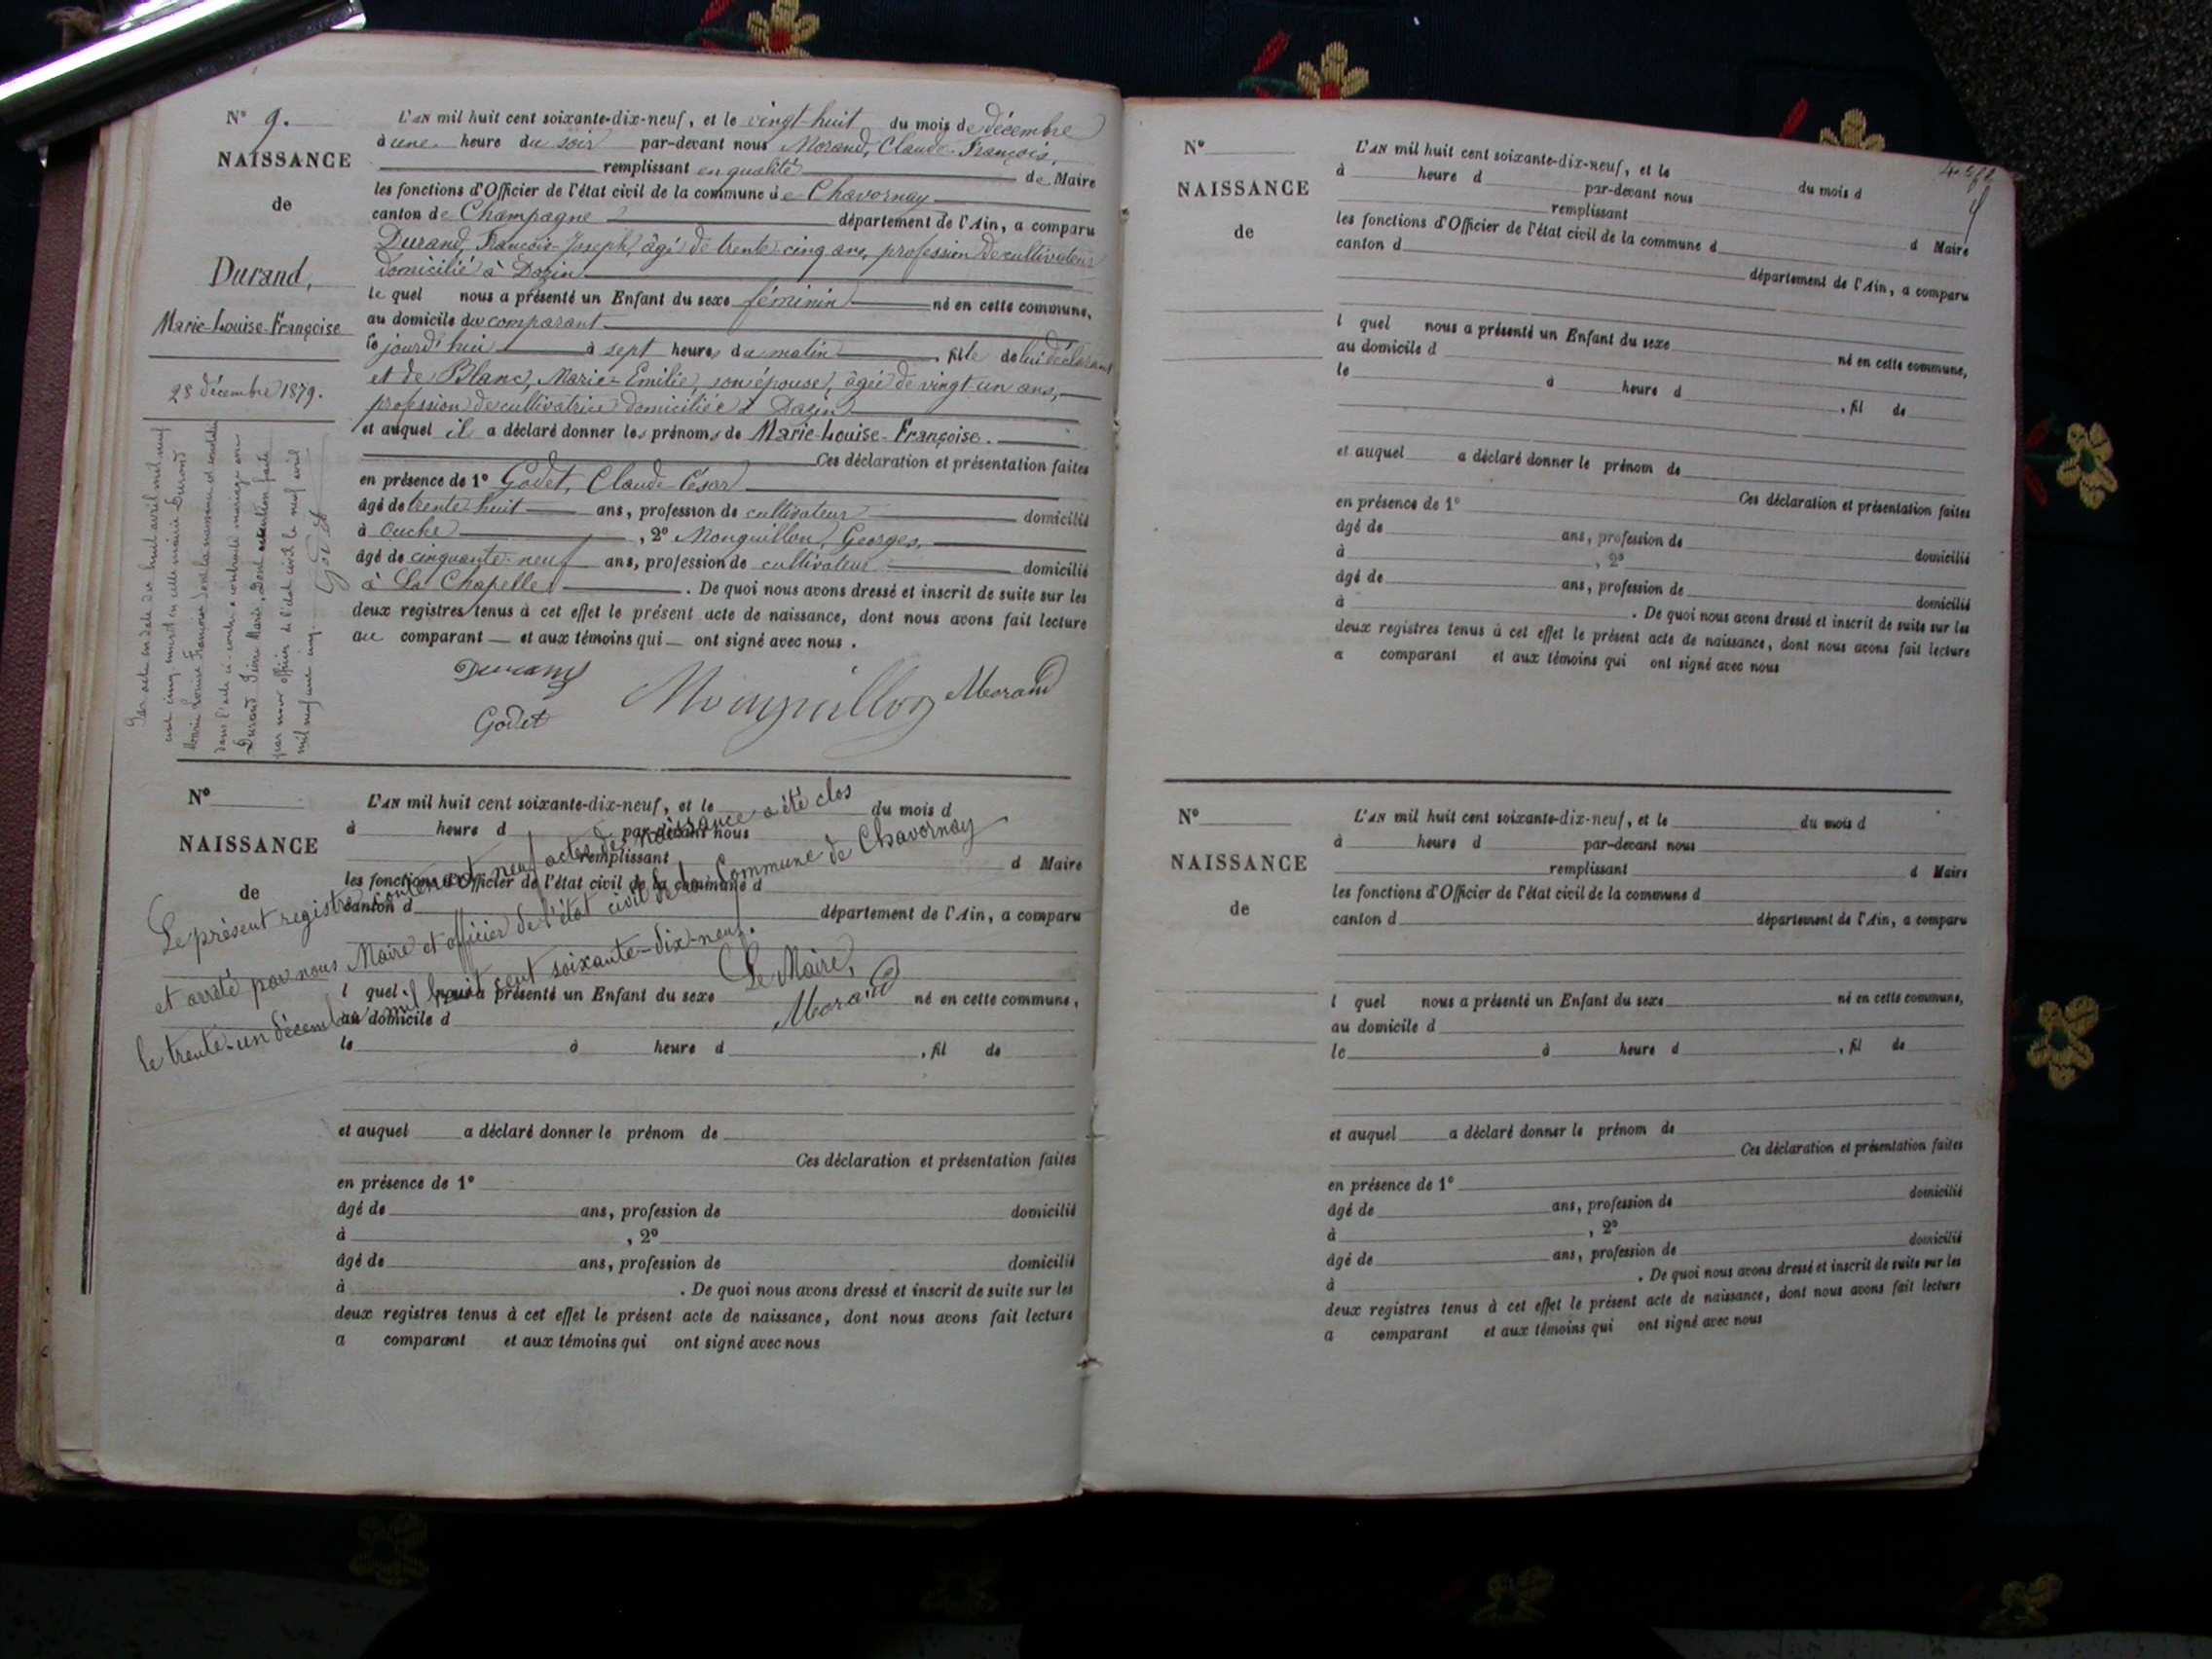 N° 9.
NAISSANCE
de
Durand,
Marie-Louise-Françoise
28 décembre 1879.
L'AN mil huit cent soixante-dix-neuf, et le vingt-huit du mois de décembre
à une heure du soir par-devant nous Morand, Claude-François,
remplissant en qualité de Maire
les fonctions d'Officier de l'état civil de la commune de Chavornay
canton de Champagne département de l'Ain, a comparu
Durand, François-Joseph, âgé de trente-cinq ans, profession de cultivateur
domicilié à Dazin
le quel nous a présenté un Enfant du sexe féminin né en cette commune,
au domicile du comparant
le jourd'hui à sept heures du matin, fille de lui déclarant
et de Blanc, Marie-Emilie, son épouse, âgée de vingt un ans,
profession de cultivatrice domiciliée à Dazin
et auquel il a déclaré donner les prénoms de Marie-Louise-Françoise.
Ces déclaration et présentation faites
en présence de 1° Godet, Claude César
âgé de trente-huit ans, profession de cultivateur domicilié
à Ouche, 2° Monguillon, Georges,
âgé de cinquante-neuf ans, profession de cultivateur domicilié
à La Chapelle. De quoi nous avons dressé et inscrit de suite sur les
deux registres tenus à cet effet le présent acte de naissance, dont nous avons fait lecture
au comparant et aux témoins qui ont signé avec nous.
Durand
Monguillon Morand
Godet
Par acte en date du huit avril mil neuf
cent cinq inscrit en cette mairie Durand
Marie Louise Françoise
dans l'acte ci-contre a contracté mariage avec
Durand Pierre Marie
par nous officier de l'état civil le neuf avril
mil neuf cent cinq
Godet
N°
NAISSANCE
de
L'AN mil huit cent soixante-dix-neuf, et le du mois d
à heure d par-devant nous
remplissant d Maire
les fonctions d'Officier de l'état civil de la commune d
canton d département de l'Ain, a comparu
l quel nous a présenté un Enfant du sexe né en cette commune,
au domicile d
le à heure d , fil de
et auquel a déclaré donner le prénom de
Ces déclaration et présentation faites
en présence de 1°
âgé de ans, profession de domicilié
à , 2°
âgé de ans, profession de domicilié
à . De quoi nous avons dressé et inscrit de suite sur les
deux registres tenus à cet effet le présent acte de naissance, dont nous avons fait lecture
a comparant et aux témoins qui ont signé avec nous
Le présent registre contenant neuf actes de naissance a été clos
et arrêté par nous Maire et officier de l'état civil de la Commune de Chavornay
le trente-un décembre mil huit cent soixante-dix-neuf.
Le Maire,
Morand
N°
NAISSANCE
de
L'AN mil huit cent soixante-dix-neuf, et le du mois d
à heure d par-devant nous
remplissant d Maire
les fonctions d'Officier de l'état civil de la commune d
canton d département de l'Ain, a comparu
l quel nous a présenté un Enfant du sexe né en cette commune,
au domicile d
le à heure d , fil de
et auquel a déclaré donner le prénom de
Ces déclaration et présentation faites
en présence de 1°
âgé de ans, profession de domicilié
à , 2°
âgé de ans, profession de domicilié
à . De quoi nous avons dressé et inscrit de suite sur les
deux registres tenus à cet effet le présent acte de naissance, dont nous avons fait lecture
a comparant et aux témoins qui ont signé avec nous
N°
NAISSANCE
de
L'AN mil huit cent soixante-dix-neuf, et le du mois d
à heure d par-devant nous
remplissant d Maire
les fonctions d'Officier de l'état civil de la commune d
canton d département de l'Ain, a comparu
l quel nous a présenté un Enfant du sexe né en cette commune,
au domicile d
le à heure d , fil de
et auquel a déclaré donner le prénom de
Ces déclaration et présentation faites
en présence de 1°
âgé de ans, profession de domicilié
à , 2°
âgé de ans, profession de domicilié
à . De quoi nous avons dressé et inscrit de suite sur les
deux registres tenus à cet effet le présent acte de naissance, dont nous avons fait lecture
a comparant et aux témoins qui ont signé avec nous